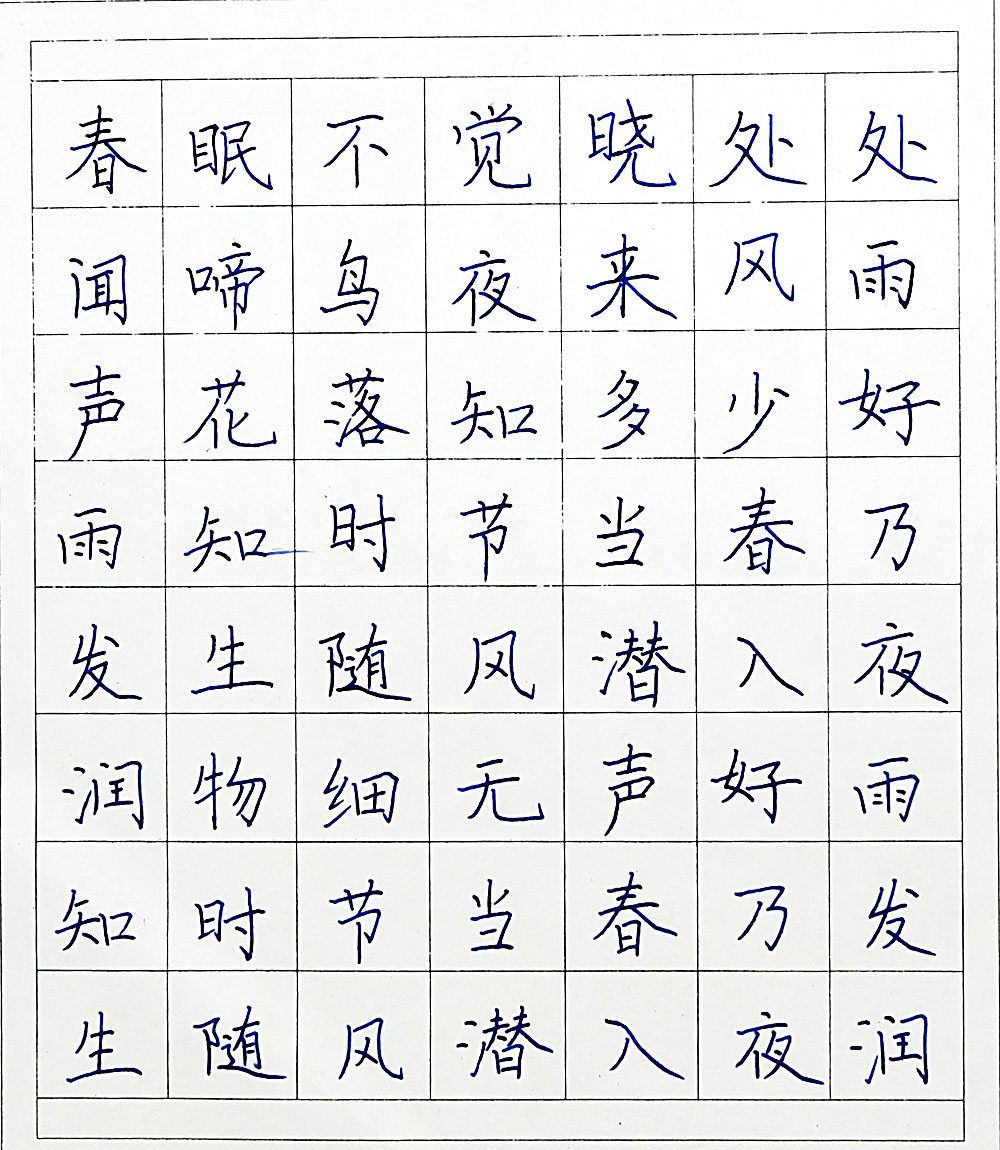 春眠不觉晓处处
闻啼鸟夜来风雨
声花落知多少好
雨知时节当春乃
发生随风潜入夜
润物细无声好雨
知时节当春乃发
生随风潜入夜润